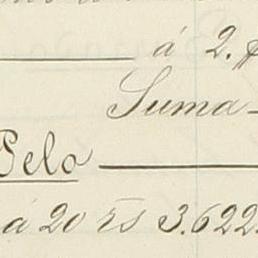 á 2.
Suma
Pelo
á 20 rs 3.622